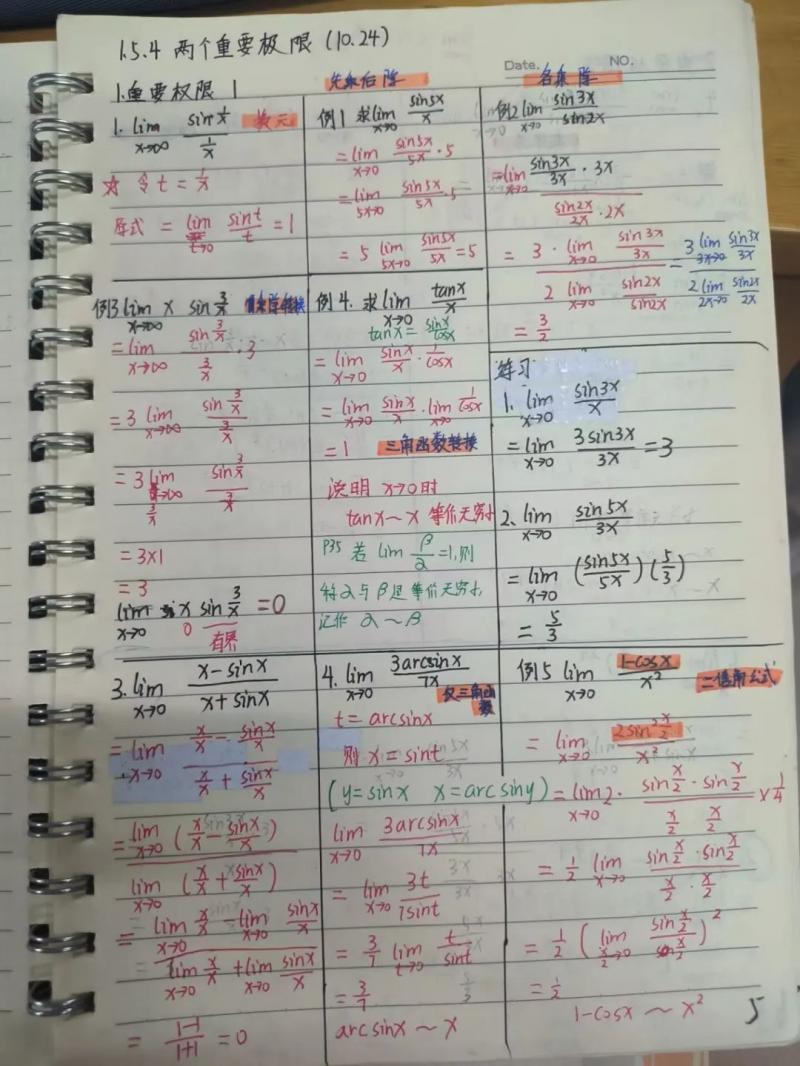 1.5.4 两个重要极限(10.24)
Date. NO.
1.重要权限 1
1. lim x→∞ sin 1/x / 1/x 换元
☆ 令 t = 1/x
原式 = lim t→0 sint/t = 1
先乘后除
例1 求 lim x→0 sin5x/x
= lim x→0 sin5x/5x · 5
= lim 5x→0 sin5x/5x · 5
= 5 lim 5x→0 sin5x/5x = 5
各乘除
例2 lim x→0 sin3x/sin2x
= lim x→0 sin3x/3x · 3x / sin2x/2x · 2x
= 3 · lim x→0 sin3x/3x / 2 lim x→0 sin2x/sin2x = 3 lim 3x→0 sin3x/3x / 2 lim 2x→0 sin2x/2x
= 3/2
例3 lim x→∞ x sin 3/x
= lim x→∞ sin 3/x / 3/x · 3
= 3 lim x→∞ sin 3/x / 3/x
= 3 lim 3/x sin 3/x / 3/x
= 3×1
= 3
lim x→0 x sin 3/x = 0
0 有界
例4. 求 lim x→0 tanx/x
tanx = sinx/cosx
= lim x→0 sinx/x · 1/cosx
= lim x→0 sinx/x · lim x→0 1/cosx
= 1 三角函数转换
说明 x→0时
tanx~x 等价无穷小
P35 若 lim β/α = 1,则
称α与β是等价无穷小,
记作 α~β
练习
1. lim x→0 sin3x/x
= lim x→0 3sin3x/3x = 3
2. lim x→0 sin5x/3x
= lim x→0 (sin5x/5x)(5/3)
= 5/3
3. lim x→0 x-sinx/x+sinx
= lim x→0 x/x - sinx/x / x/x + sinx/x
= lim x→0 (x/x - sinx/x) / lim x→0 (x/x + sinx/x)
= lim x→0 x/x - lim x→0 sinx/x / lim x→0 x/x + lim x→0 sinx/x
= 1-1/1+1 = 0
4. lim x→0 3arcsinx/7x
反三角函数
t = arcsinx
则 x = sint
(y=sinx x=arcsiny)
lim x→0 3arcsinx/7x
= lim x→0 3t/7sint
= 3/7 lim t→0 t/sint
= 3/7
arcsinx ~ x
例5 lim x→0 1-cosx/x² 二倍角公式
= lim x→0 2sin² x/2 / x²
= lim x→0 2 · sin x/2 · sin x/2 / x/2 x/2 × 1/4
= 1/2 lim x→0 sin x/2 · sin x/2 / x/2 · x/2
= 1/2 (lim x/2→0 sin x/2 / x/2)²
= 1/2
1-cosx ~ x²
5